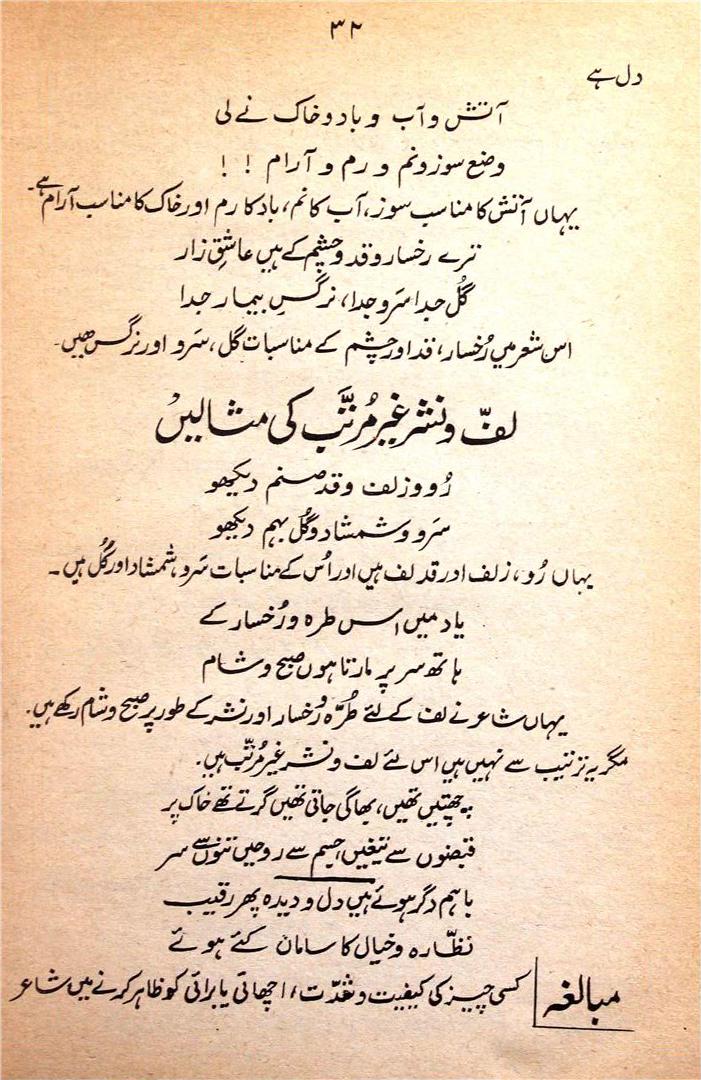 ۳۲
دل ہے
آتش و آب و باد و خاک نے لی
وضع سوز و نم و رم و آرام ! !
یہاں آتش کا مناسب سوز، آب کا نم، باد کا رم اور خاک کا مناسب آرام ہے۔
ترے رخسار و قد و چشم کے ہیں عاشقِ زار
گُل جدا سَرو جدا، نرگسِ بیمار جدا
اس شعر میں رُخسار، قد اور چشم کے مناسبات گل، سَرو اور نرگس ہیں۔
لفّ و نشر غیر مُرتَّب کی مثالیں
رُو و زلف و قدِ صنم دیکھو
سَرو و شمشاد و گُل بہم دیکھو
یہاں رُو، زلف اور قد لف ہیں اور اُس کے مناسبات سَرو، شمشاد اور گُل ہیں۔
یاد میں اس طرہ و رُخسار کے
ہاتھ سر پر مارتا ہوں صبح و شام
یہاں شاعر نے لف کے لئے طُرّہ و رُخسار اور نشر کے طور پر صبح و شام رکھے ہیں۔
مگر یہ ترتیب سے نہیں ہیں اس لئے لف و نشر غیر مُرتّب ہیں۔
چھپتیں تھیں، بھاگی جاتی تھیں گرتے تھے خاک پر
قبضوں سے تیغیں، جسم سے روحیں تنوں سے سر
باہم دگر ہوئے ہیں دل و دیدہ پھر رقیب
نظّارہ و خیال کا ساماں کئے ہوئے
مبالغہ کسی چیز کی کیفیت و شدّت، اچھائی یا برائی کو ظاہر کرنے میں شاعر